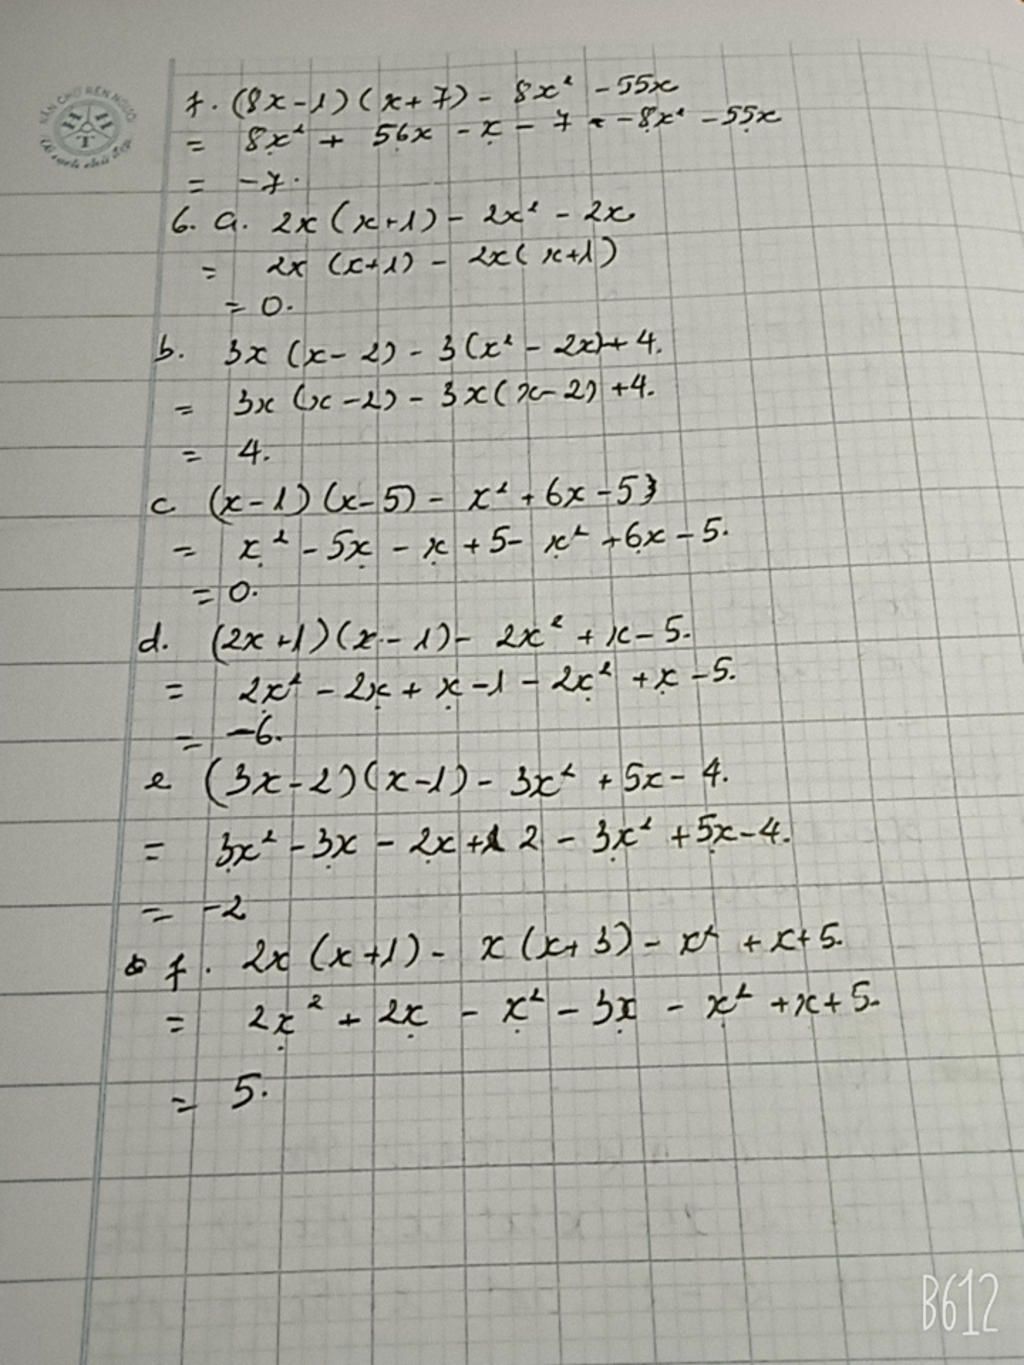 HÂN CHỦ RÈN NGƯỜI
H H
T
f. (8x-1)(x+7) - 8x² - 55x
= 8x² + 56x - x - 7 - -8x² - 55x
= -7.
6. a. 2x(x+1) - 2x² - 2x
= 2x (x+1) - 2x(x+1)
= 0.
b. 3x (x-2) - 3(x² - 2x)+4.
= 3x (x-2) - 3x(x-2) +4.
= 4.
c (x-1)(x-5) - x² + 6x - 5
= x² - 5x - x + 5 - x² + 6x - 5.
= 0.
d. (2x+1)(x-1) - 2x² + x - 5.
= 2x² - 2x + x - 1 - 2x² + x - 5.
= -6.
e (3x-2)(x-1) - 3x² + 5x - 4.
= 3x² - 3x - 2x + 2 - 3x² + 5x - 4.
= -2
f. 2x (x+1) - x (x+3) - x² + x + 5.
= 2x² + 2x - x² - 3x - x² + x + 5.
= 5.
B612